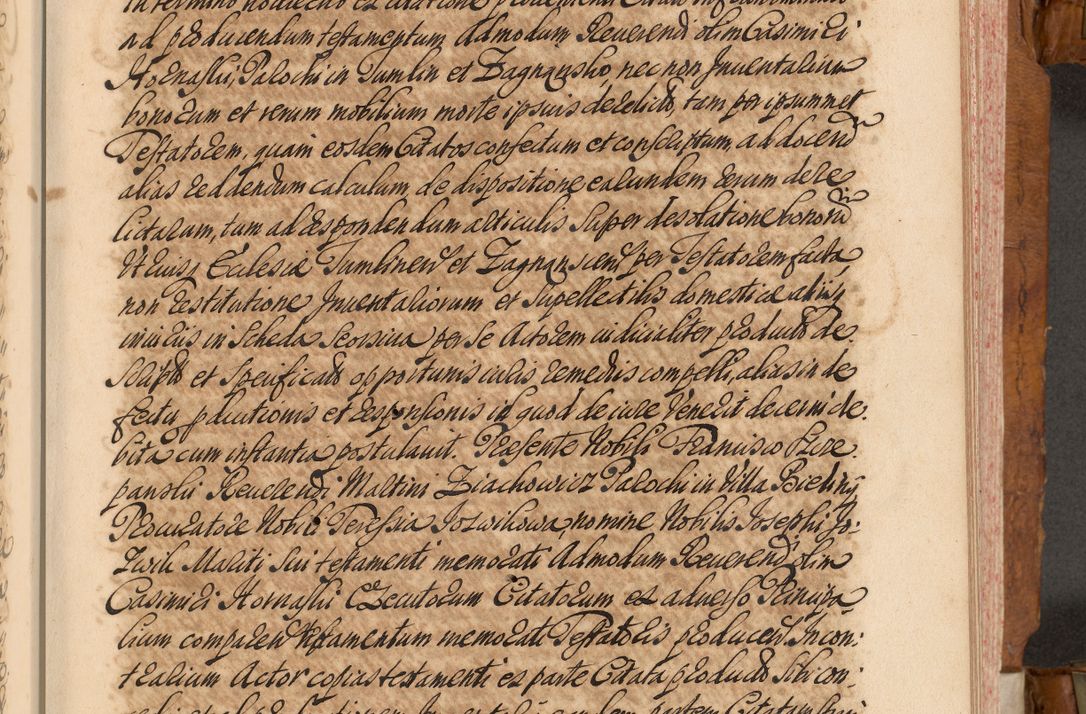 ad producendum testamentum Admodum Reverendi olim Casimiri
Hornaski, Parochi in Tumlin et Zagnansko, nec non Inventarium
bonorum et rerum mobilium morte ipsius derelict, tam per ipsummet
Testatorem, quam eosdem Citatos confectum et conscriptum, ad docend
alias reddendum calculum, de dispositione earundem rerum dere
lictarum, tum ad respondendum articulis super desolatione bonorū
utriusq Ecclesiæ Tumlinen et Zagnanscien per Testatorem facta,
non restitutione Inventariorum et supellectilis domesticæ aliisq
in Scheda seorsiva per se Actorem iudicialiter product de
script et specificat opportunis iuris remediis compelli, alias in de
fectu et responsionis in quod de iure venerit decerni de
bita cum instantia postulavit. Præsente Nobili Francisco
Reverendi Martini Ziachowicz Parochi in Villa Bieliny
Procuratore Nobili Teressia Jozwikowa, nomine Nobilis Josephi Jo:
zwik Mariti sui testamenti memorati Admodum Reverendi olim
Casimiri Hornaski Executorum Citatorum ex adverso
lium comparen testamentum memorati Testatoris producen. In con:
trarium Actor copias testamenti ex parte Citata product sibi con: